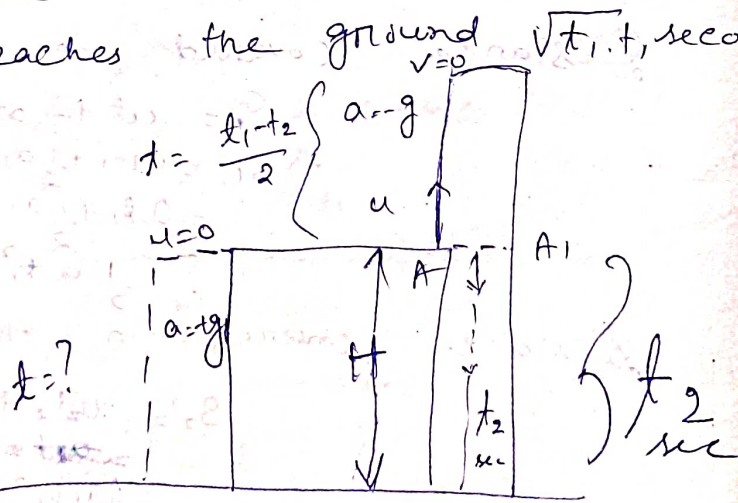 eaches the ground √t₁.t, seco
v=0
t = t₁-t₂/2 { a=-g
u
u=0
A A1
a=+g
t=? H
t₂ sec
} t₂ sec